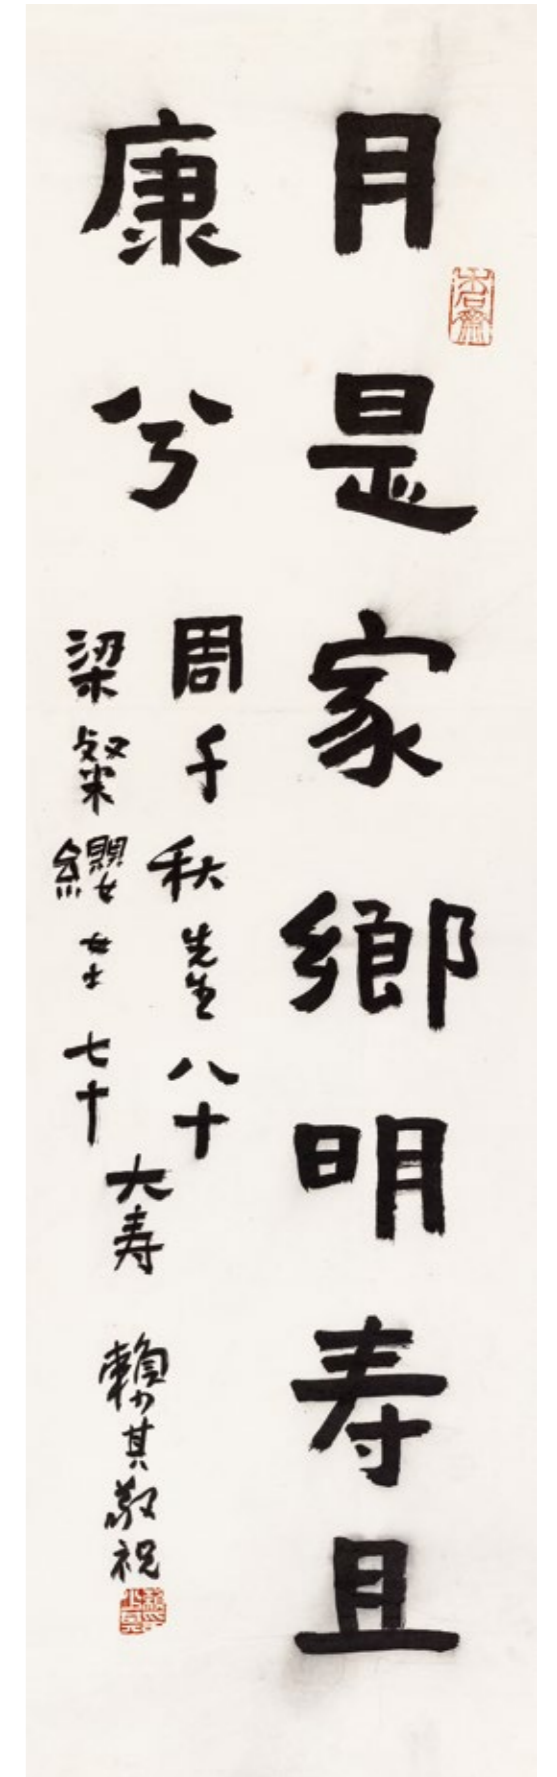 月是家鄉明寿且
木石齋
康兮
周千秋先生八十
梁粲纓女士七十
大寿
賴少其敬祝